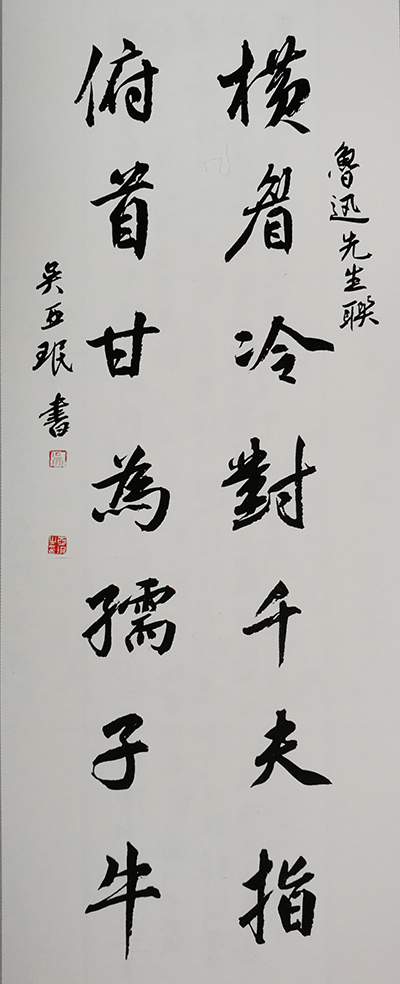 魯迅先生聯
横眉冷對千夫指
俯首甘為孺子牛
吴亚珉書